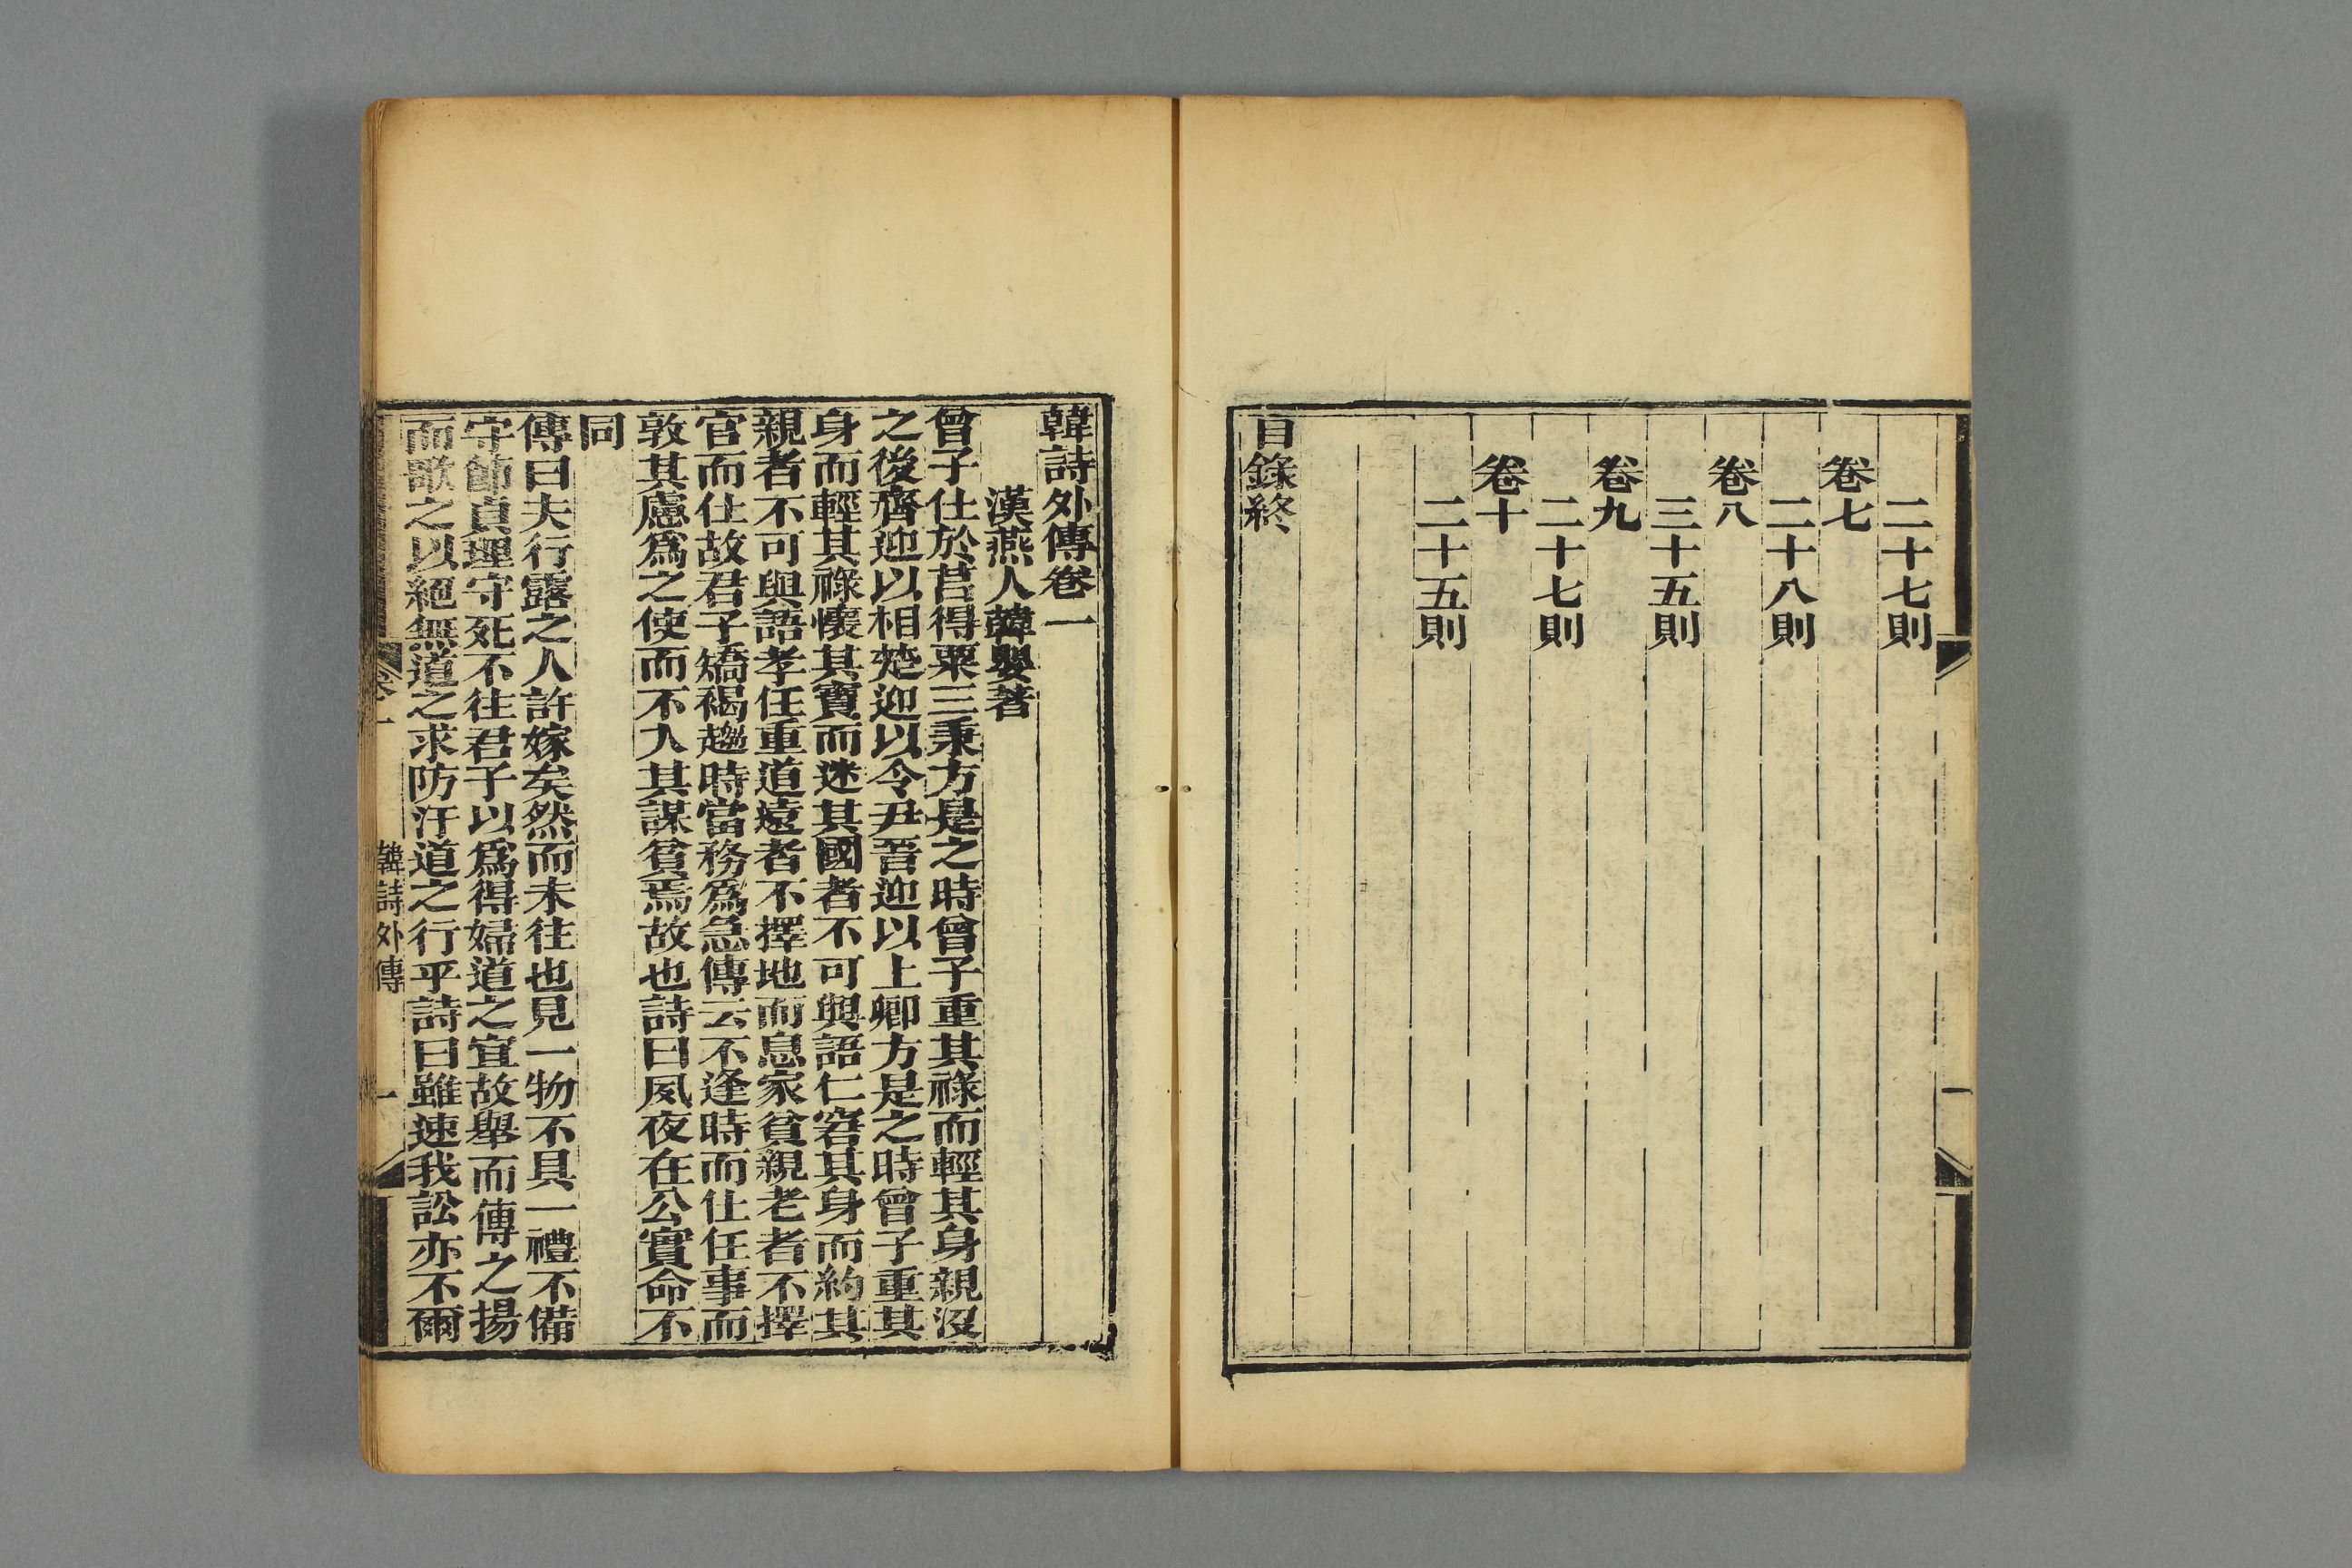 二十七則
卷七
二十八則
卷八
三十五則
卷九
二十七則
卷十
二十五則
目錄終
一
韓詩外傳卷一
漢燕人韓嬰著
曾子仕於莒得粟三秉方是之時曾子重其祿而輕其身親沒
之後齊迎以相楚迎以令尹晉迎以上卿方是之時曾子重其
身而輕其祿懷其寶而迷其國者不可與語仁窘其身而約其
親者不可與語孝任重道遠者不擇地而息家貧親老者不擇
官而仕故君子矯褐趨時當務爲急傳云不逢時而仕任事而
敦其慮爲之使而不入其謀貧焉故也詩曰夙夜在公實命不
同
傳曰夫行露之人許嫁矣然而未往也見一物不具一禮不備
守節貞理守死不往君子以爲得婦道之宜故舉而傳之揚
而歌之以絕無道之求防汙道之行乎詩曰雖速我訟亦不爾
卷一
韓詩外傳
一